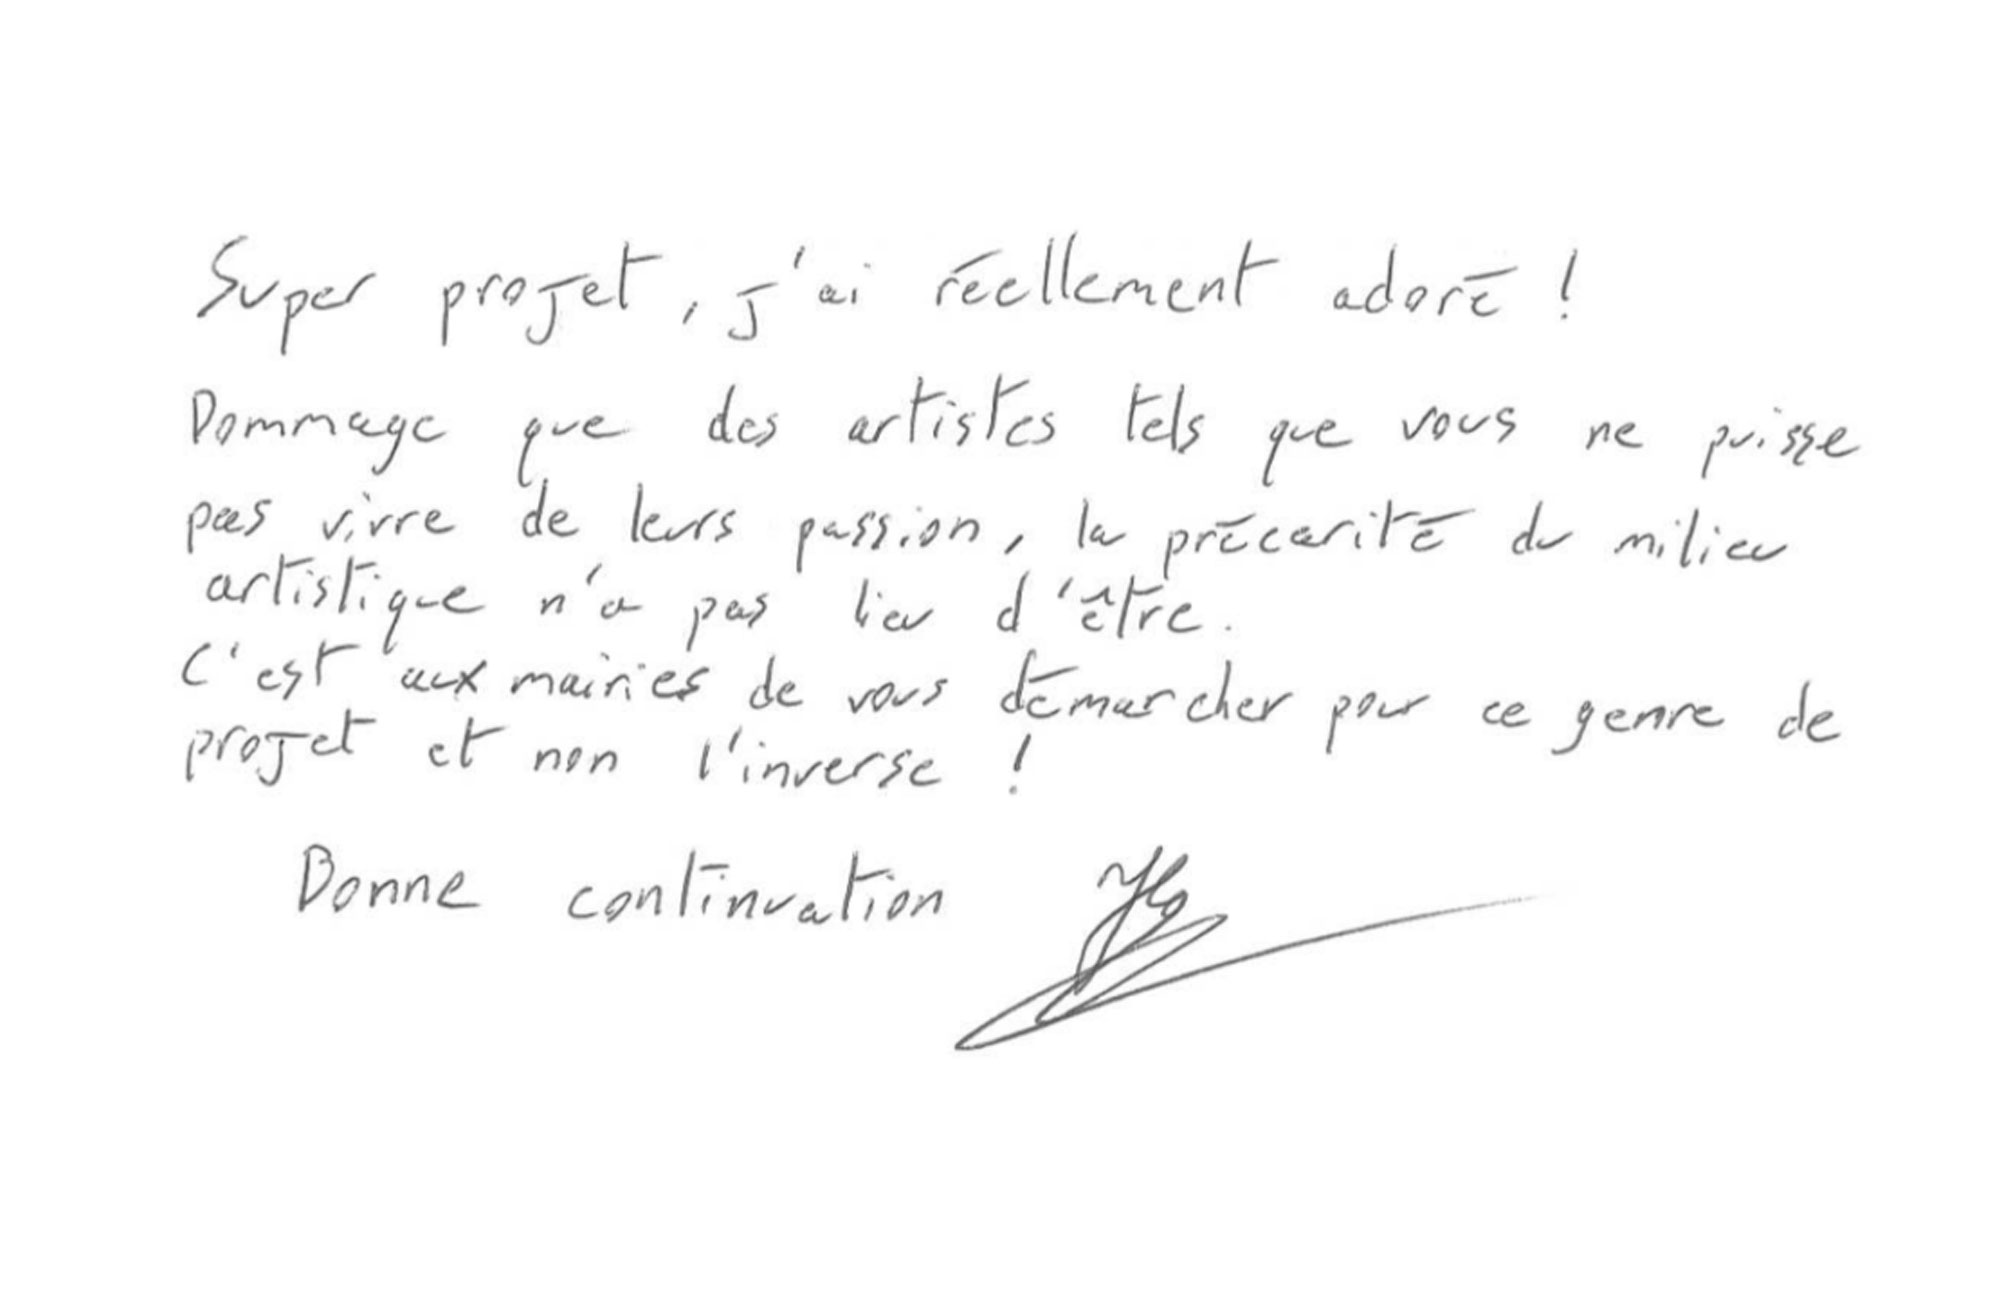 Super projet, j'ai réellement adoré !
Dommage que des artistes tels que vous ne puisse
pas vivre de leurs passion, la précarité du milieu
artistique n'a pas lieu d'être.
C'est aux mairies de vous démarcher pour ce genre de
projet et non l'inverse !
Bonne continuation